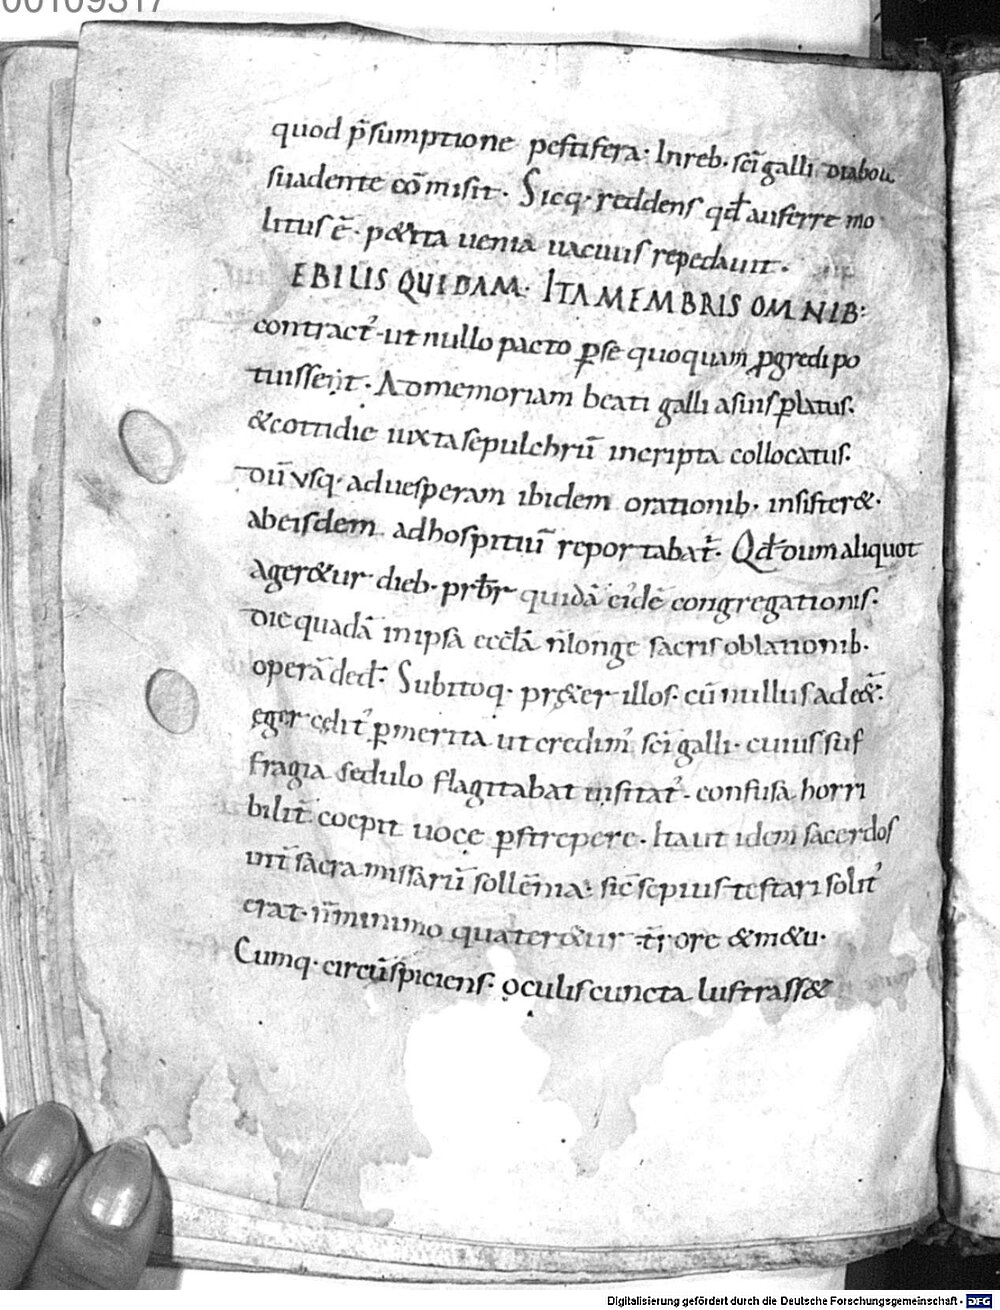 00109317
quod p̃sumptione pestifera· Inreb· sc̃i galli diabolı
suadente cõmisit· Sicq· reddens qđ auferre mo
litus ẽ· p&ita uenia uacuus repedauit·
EBILIS QUIDAM· ITA MEMBRIS OMNIB:
contract᾽· ut nullo pacto ꝑse quoquam ꝓgredi po
tuissent· Admemoriam beati galli asinis ꝑlatus·
&cottidie iuxta sepulchrũ incripta collocatus·
dũ usq· aduesperam ibidem orationib· insister&·
abeisdem adhospitiũ reportabat᾽· Qđ dum aliquot
ager&ur dieb· prb̃r quidã eiᵈdẽ congregationis·
die quadã inipsa ecc̃lã ñ longe sacris oblationib·
operã ded᾽· Subitoq· pręter illos· cũ nullus adeẽ&·
ęger cęlit᾽ ꝑmerita ut credim᾽ sc̃i galli· cuius suf
fragia sedulo flagitabat uisitat᾽· confusa horri
bilit̃ coepit uoce ꝑstrepere· Ita ut idem sacerdos
int̃ sacra missarũ sollẽnia· sic̃ sepius testari solit᾽
erat· ñ minimo quater&ur t̃rore &m&u·
Cumq· circũspiciens· oculis cuncta lustrass&
Digitalisierung gefördert durch die Deutsche Forschungsgemeinschaft - DFG